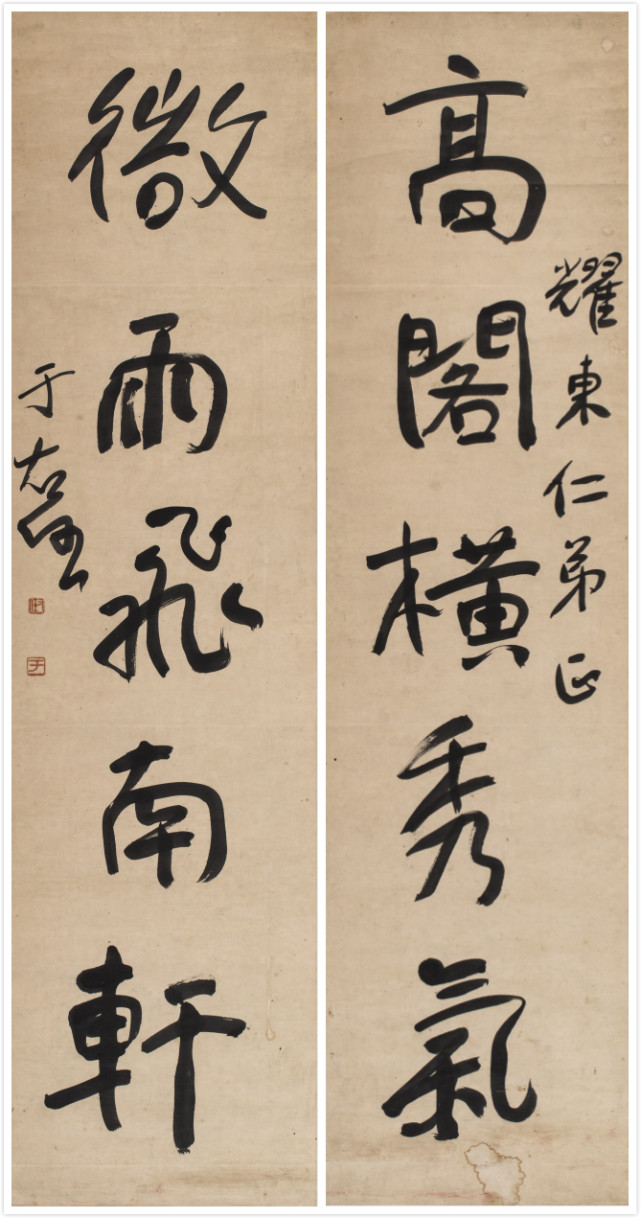 高閣橫秀氣
耀東仁弟正
微雨飛南軒
于右任